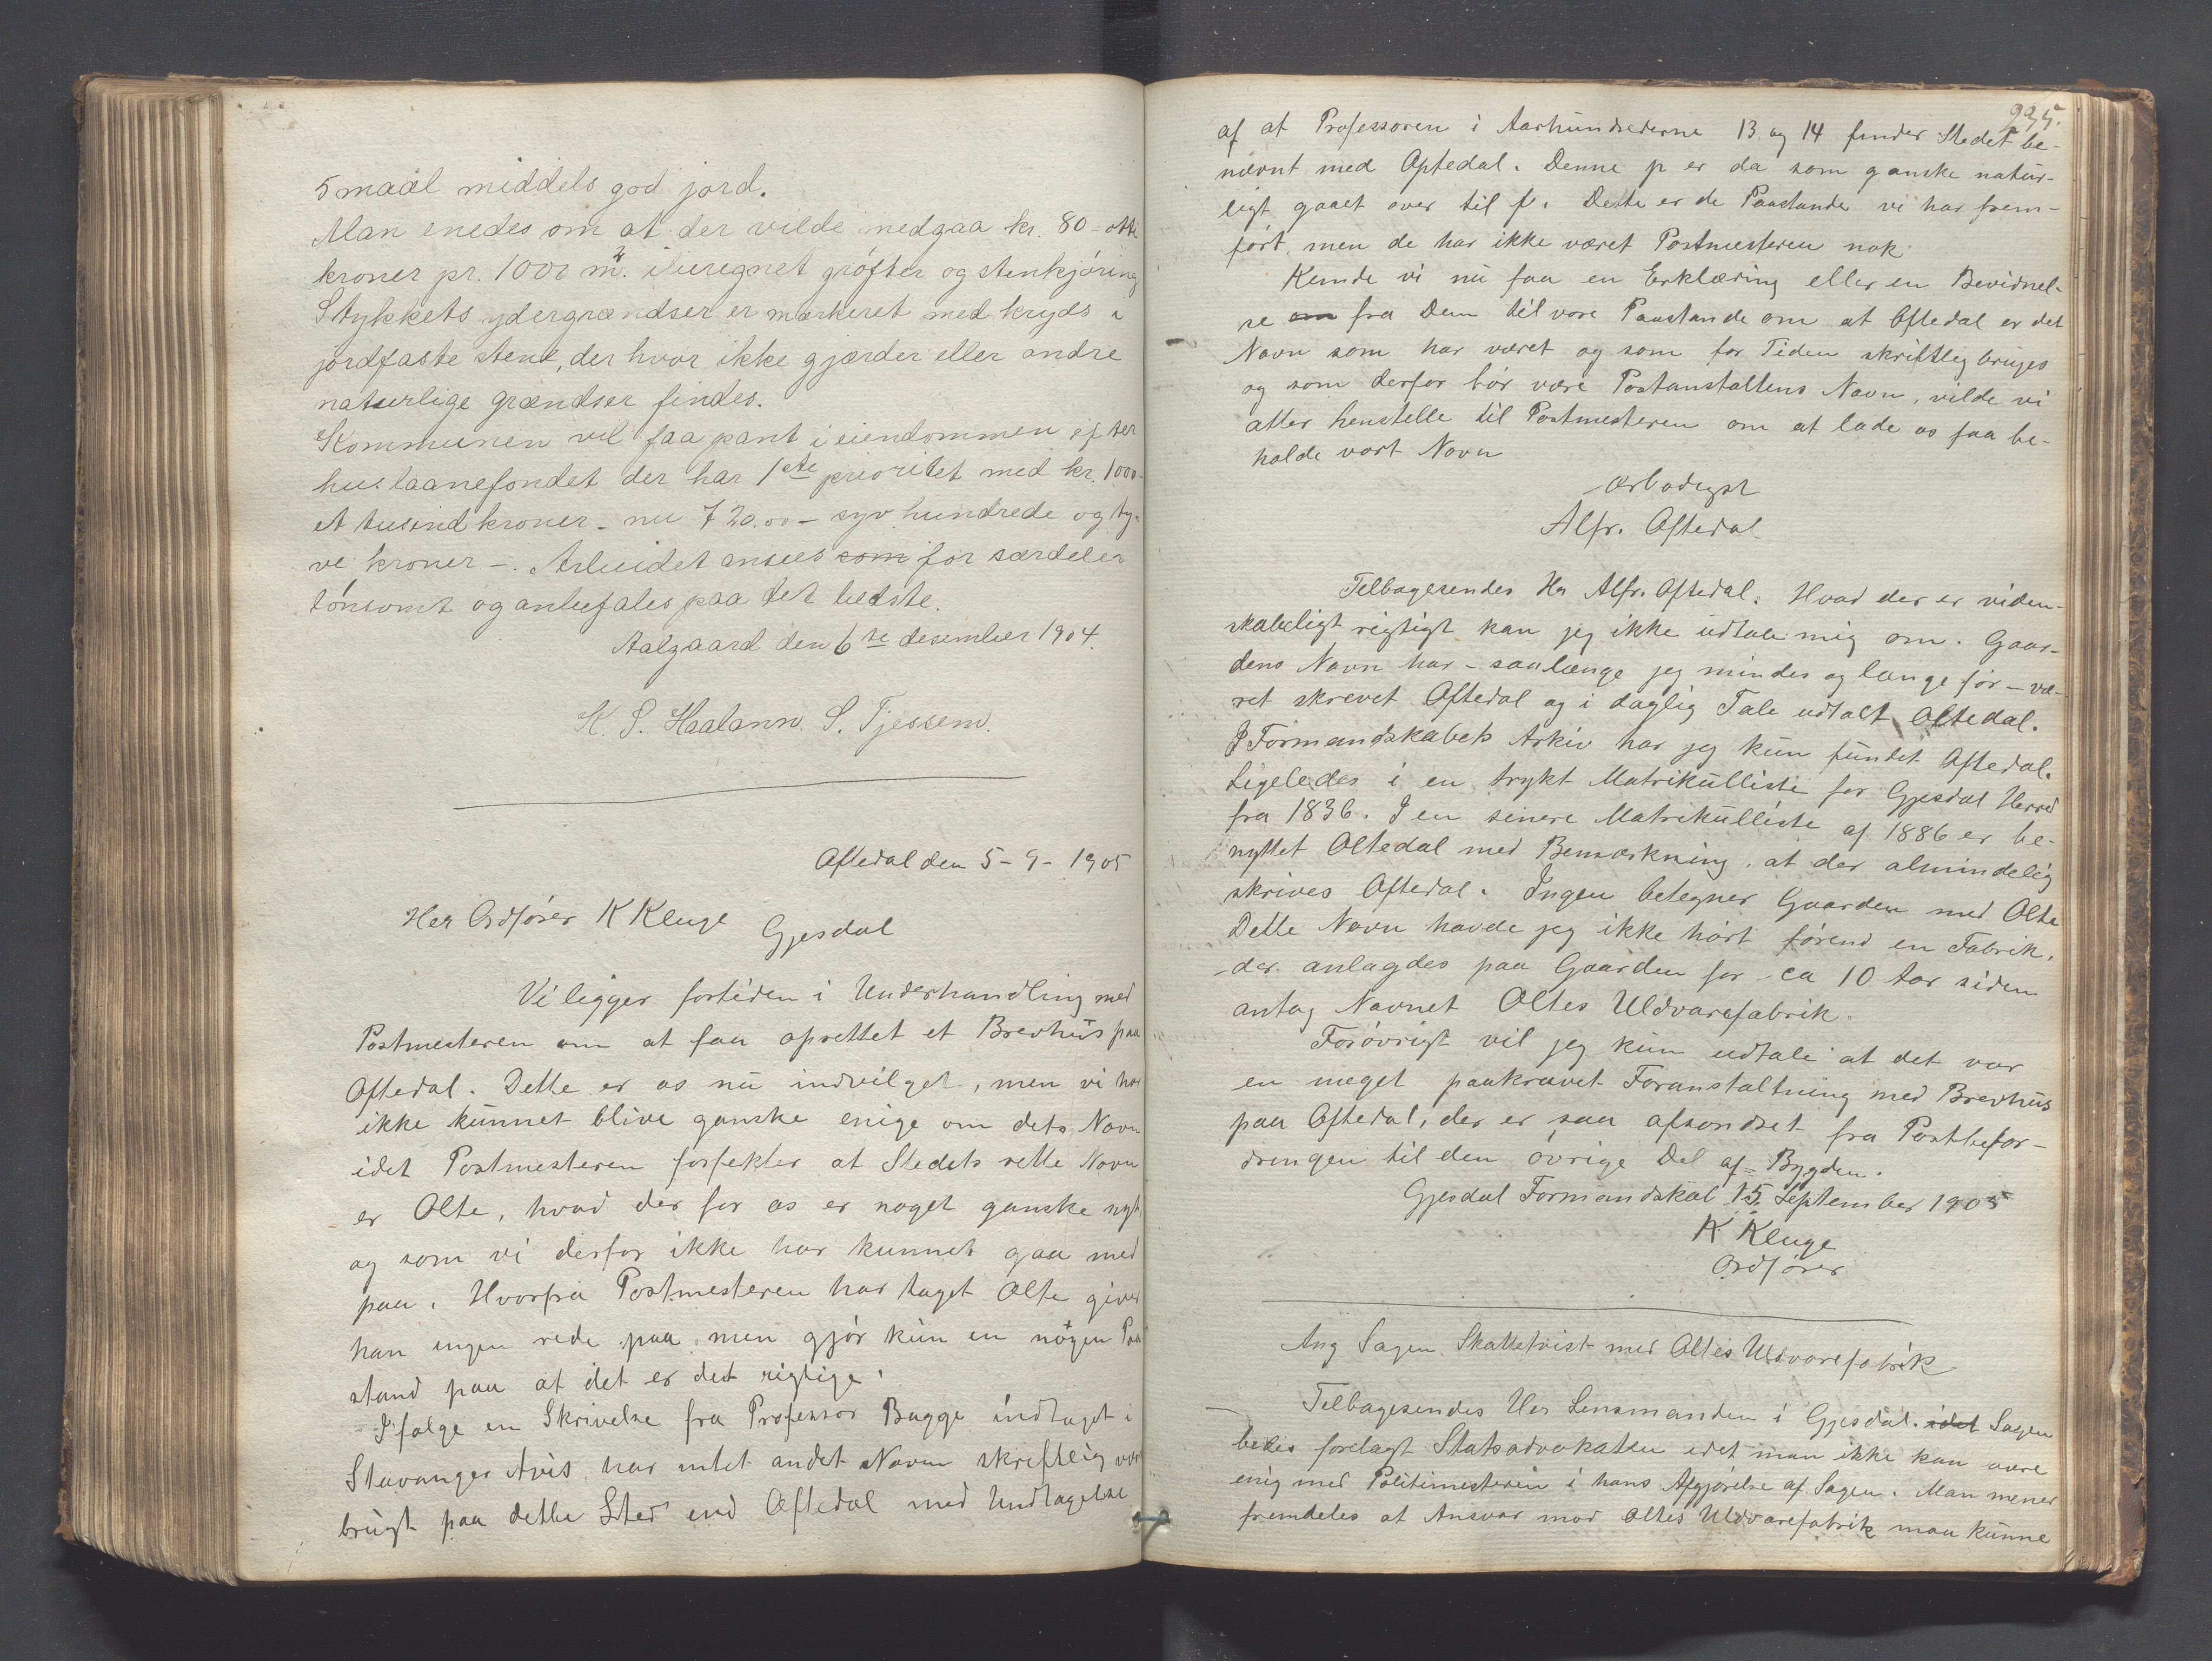 5 maal middels god jord.
Man enedes om at der vilde medgaa kr. 80 - otti
kroner pr. 1000 m². iberegnet grøfter og stenkjøring
Stykkets ydergrændser er markeret med kryds i
jordfaste stene, der hvor ikke gjærder eller andre
naturlige grændser findes.
Kommunen vil faa pant i eiendommen efter
huslaanefondet der har 1ste prioritet med kr. 1000-
et tusind kroner - nu 720.00 - syv hundrede og ty-
ve kroner -. Arbeidet ansees som for særdeles
lønsomt og anbefales paa det bedste.
Aalgaard den 6te desember 1904.
K. S. Haaland. S. Tjessem.
Oftedal den 5-9-1905
Her Ordfører K Kluge
Gjesdal
Vi ligger fortiden i Underhandling med
Postmesteren om at faa oprettet et Brevhus paa
Oftedal. Dette er os nu indvilget, men vi har
ikke kunnet blive ganske enige om dets Navn
idet Postmesteren forfekter at Stedets rette Navn
er Olte, hvad der for os er noget ganske nyt,
og som vi derfor ikke har kunnet gaa med
paa. Hvorfra Postmesteren har taget Olte giver
han ingen rede paa, men gjør kun en nøgen Paa
stand paa at det er det rigtige.
Ifølge en Skrivelse fra Professor Bugge indtaget i
Stavanger Avis, har intet andet Navn skriftlig vær
brugt paa dette Sted end Oftedal med Undtagelse
235.
af at Professoren i Aarhundrederne 13 og 14 finder Stedet be-
nævnt med Optedal. Denne p er da som ganske natur-
ligt gaaet over til f. Dette er de Paastande vi har frem-
ført, men de har ikke været Postmesteren nok.
Kunde vi nu faa en Erklæring eller en Bevidnel-
se om fra Dem til vore Paastande om at Oftedal er det
Navn som har været og som for Tiden skriftlig bruges
og som derfor bør være Postanstaltens Navn, vilde vi
atter henstelle til Postmesteren om at lade os faa be-
holde vort Navn
Ærbødigst
Alfr. Oftedal
Tilbagesendes Hr Alfr. Oftedal. Hvad der er viden-
skabeligt rigtigt kan jeg ikke udtale mig om. Gaar-
dens Navn har - saalænge jeg mindes og længe før - væ-
ret skrevet Oftedal og i daglig Tale udtalt Oltedal.
I Formandskabets Arkiv har jeg kun fundet Oftedal.
Ligeledes i en trykt Matrikulliste for Gjesdal Herred
fra 1836. I en senere Matrikulliste af 1886 er be-
nyttet Oltedal med Bemærkning, at der almindelig
skrives Oftedal. Ingen betegner Gaarden med Olte
Dette Navn havde jeg ikke hørt førend en Fabrik,
der anlagdes paa Gaarden for ca 10 Aar siden
antog Navnet Oltes Uldvarefabrik.
Forøvrigt vil jeg kun udtale at det var
en meget paakrævet Foranstaltning med Brevhus
paa Oftedal, der er saa afsondret fra Postbefor-
dringen til den øvrige Del af Bygden.
Gjesdal Formandskab 15 September 1905
K Kluge
Ordfører
Ang Sagen Skattetvist med Oltes Uldvarefabrik
Tilbagesendes Her Lensmanden i Gjesdal. idet Sagen
bedes forelagt Statsadvokaten idet man ikke kan være
enig med Politimesteren i hans Afgjørelse af Sagen. Man mener
fremdeles at Ansvar mod Oltes Uldvarefabrik maa kunne